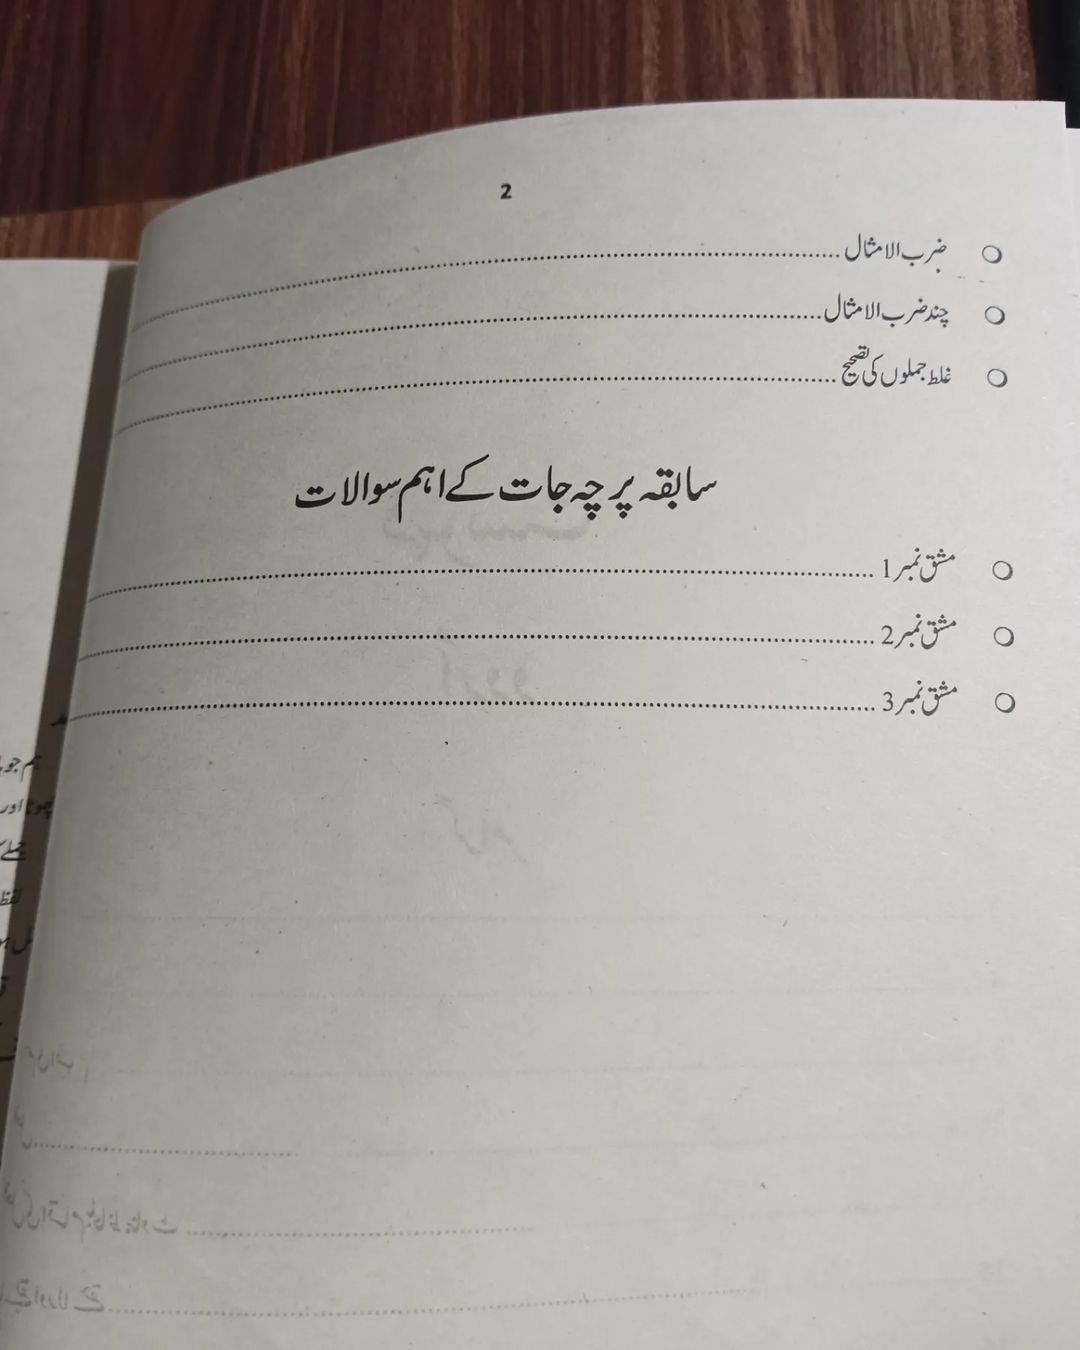 2
ضرب الامثال
چند ضرب الامثال
غلط جملوں کی تصحیح
سابقہ پرچہ جات کے اہم سوالات
مشق نمبر 1
مشق نمبر 2
مشق نمبر 3